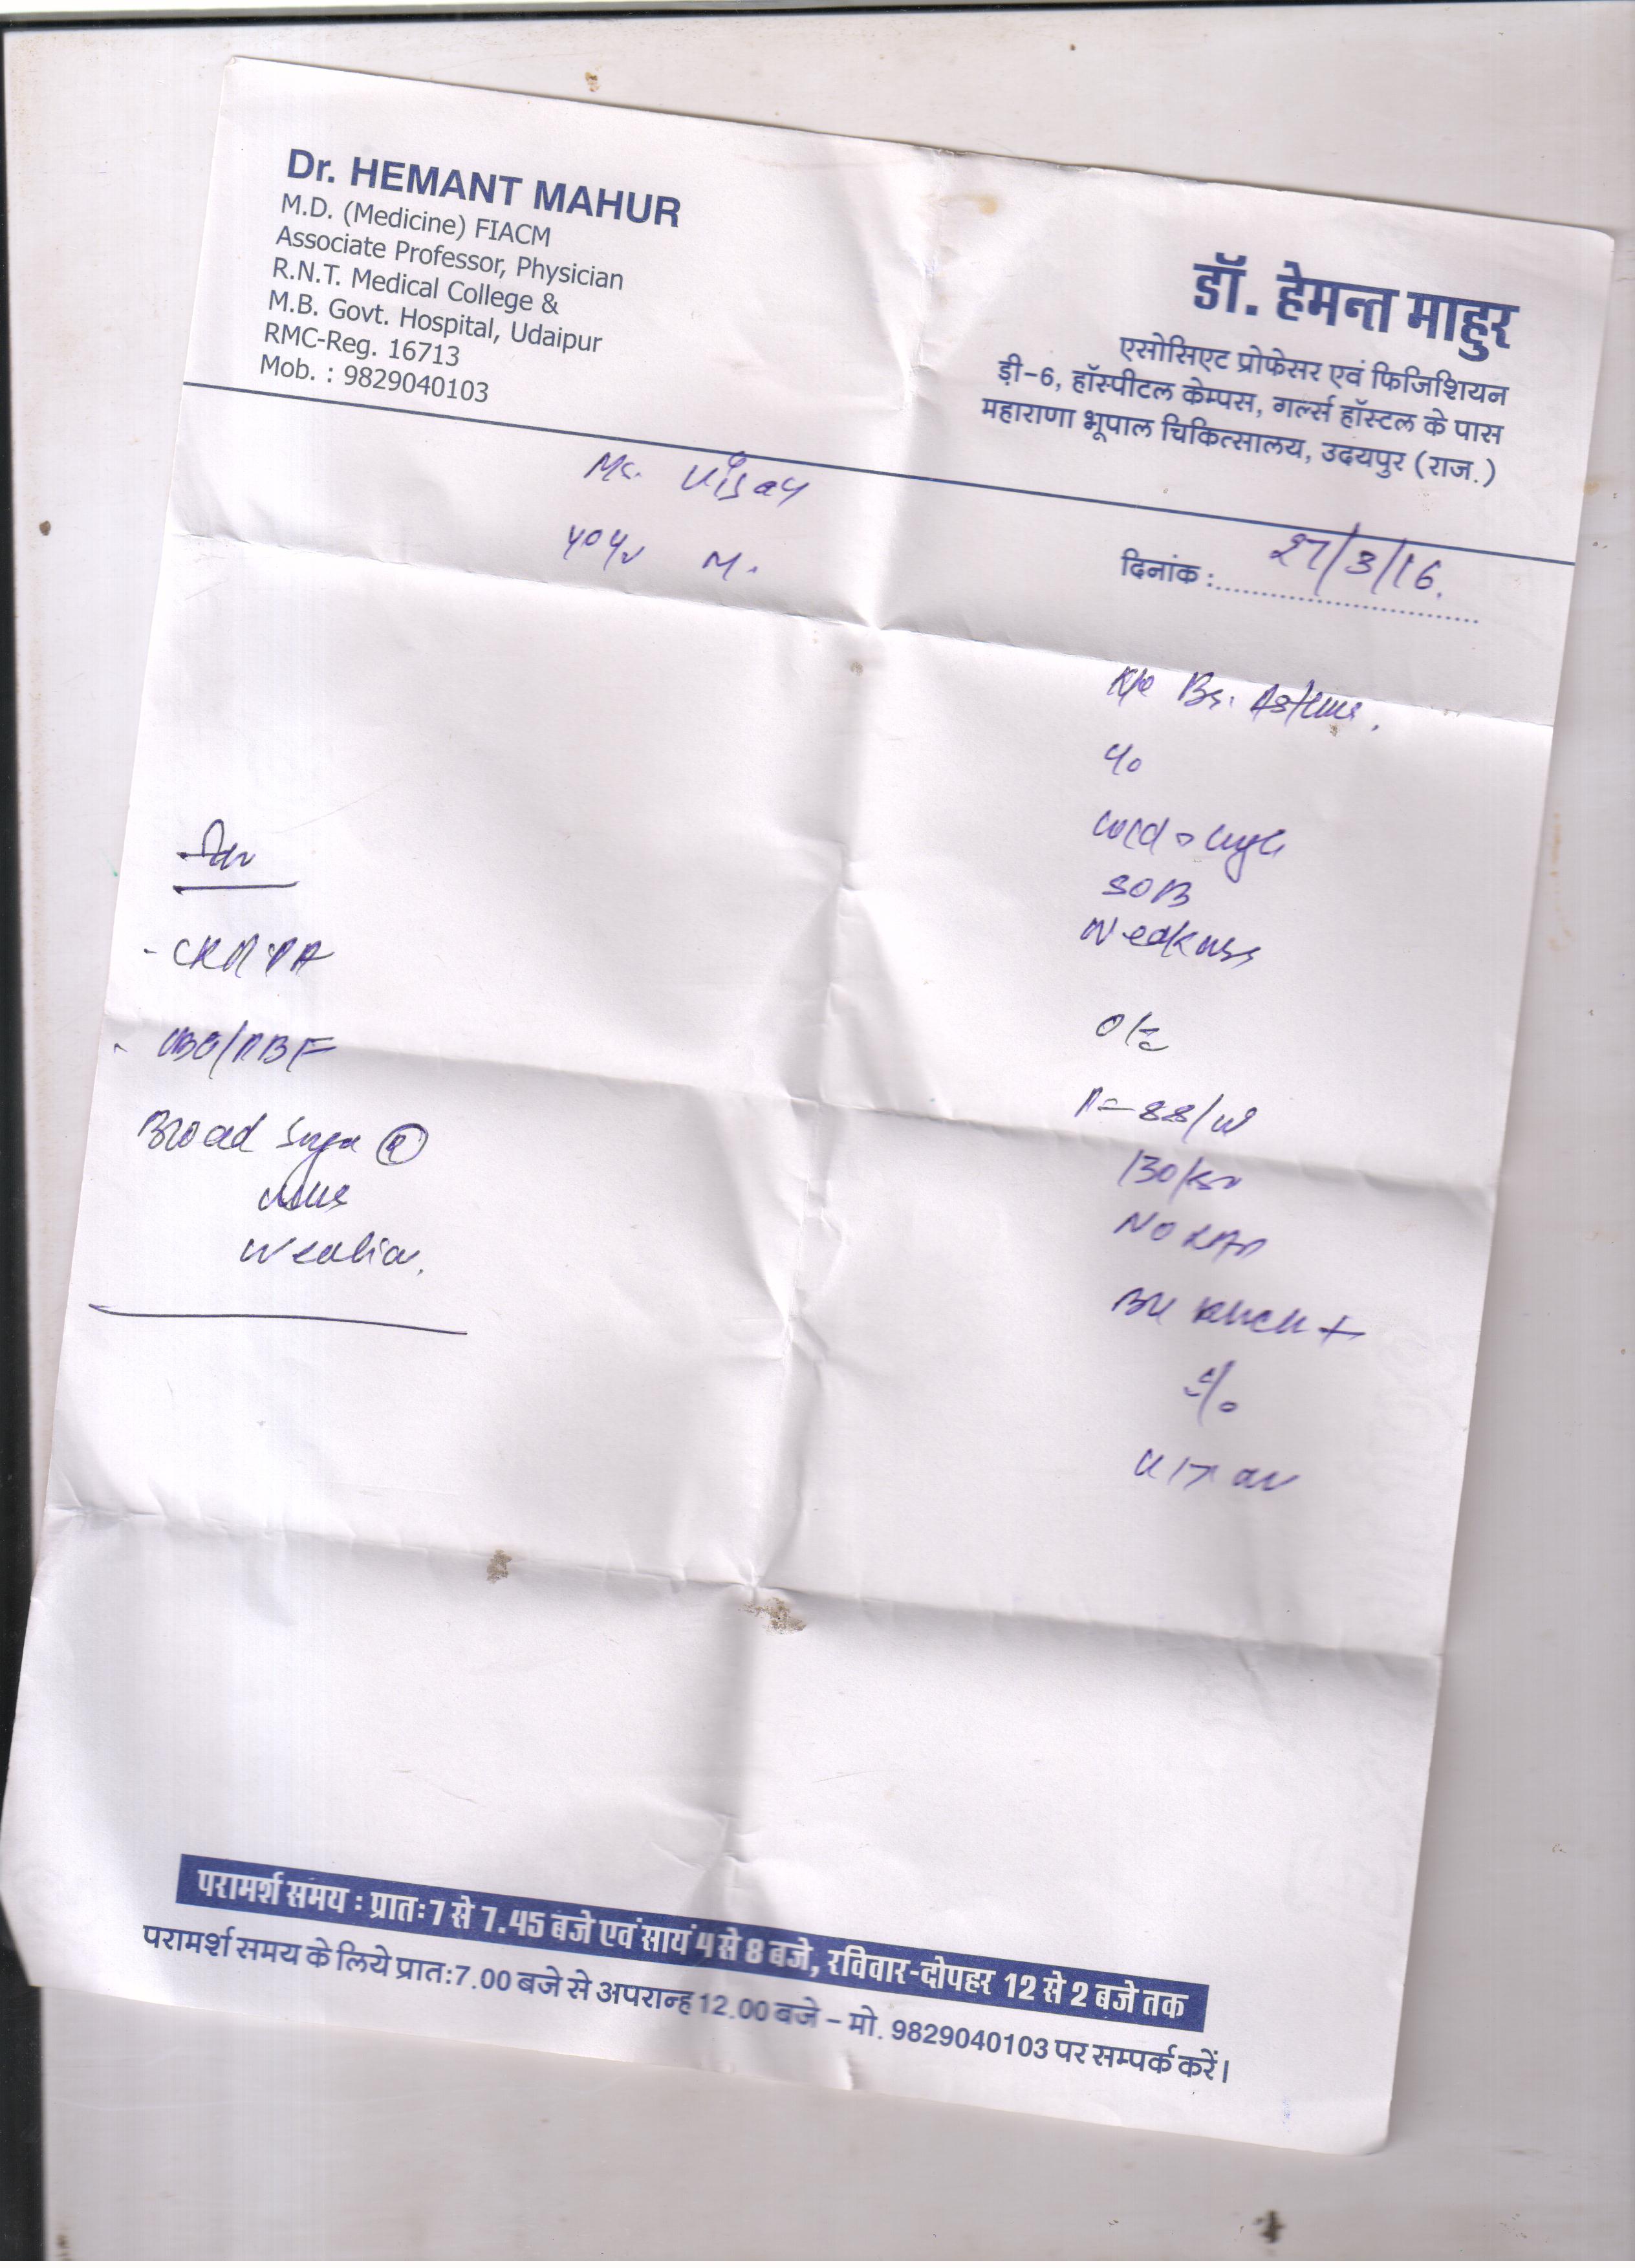 Dr. HEMANT MAHUR
M.D. (Medicine) FIACM
Associate Professor, Physician
R.N.T. Medical College &
M.B. Govt. Hospital, Udaipur
RMC-Reg. 16713
Mob. : 9829040103
डॉ. हेमन्त माहुर
एसोसिएट प्रोफेसर एवं फिजिशियन
ड़ी-6, हॉस्पीटल केम्पस, गर्ल्स हॉस्टल के पास
महाराणा भूपाल चिकित्सालय, उदयपुर (राज.)
Mr. Vijay
40 yr M.
दिनांक : 27/3/16.
K/c Br. Asthma.
c/o
cold & cough
SOB
Weakness
O/E
P=88/m
130/80
NO
B/L Rhonchi +
- CXR PA
- CBC/PBF
Blood Sugar (R)
परामर्श समय : प्रातः 7 से 7.45 बजे एवं सायं 4 से 8 बजे, रविवार-दोपहर 12 से 2 बजे तक
परामर्श समय के लिये प्रातः 7.00 बजे से अपरान्ह 12.00 बजे – मो. 9829040103 पर सम्पर्क करें।